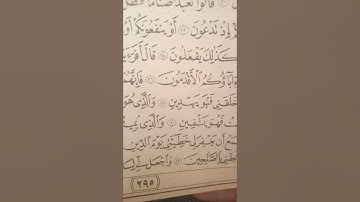 قَالُوا نَعْبُدُ أَصْنَامًا فَنَظَلُّ
إِذْ تَدْعُونَ ٧٢ أَوْ يَنفَعُونَكُمْ أَوْ
كَذَٰلِكَ يَفْعَلُونَ ٧٤ قَالَ أَفَرَءَيْـ
وَءَابَاؤُكُمُ الْأَقْدَمُونَ ٧٦ فَإِنَّهُمْ
خَلَقَنِي فَهُوَ يَهْدِينِ ٧٨ وَالَّذِي هُوَ
ـتُ فَهُوَ يَشْفِينِ ٨٠ وَالَّذِي يُمِيتُـ
ـمَعُ أَن يَغْفِرَ لِي خَطِيئَتِي يَوْمَ الدِّينِ
ـحِقْنِي بِالصَّالِحِينَ ٨٣ وَاجْعَل لِّي لِسَـ
٢٩٥